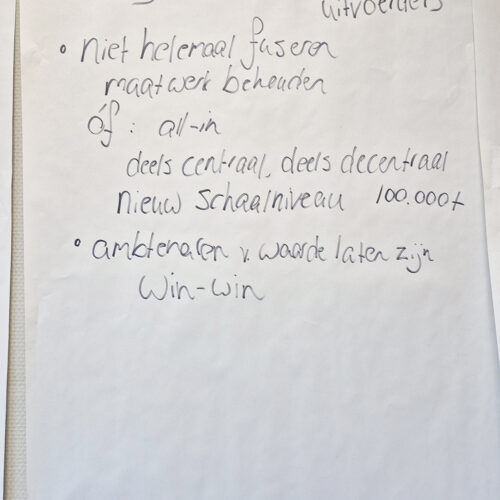 uitvoerders
• niet helemaal fuseren
maatwerk behouden
óf : all-in
deels centraal, deels decentraal
nieuw schaalniveau 100.000+
• ambtenaren v. waarde laten zijn
win-win